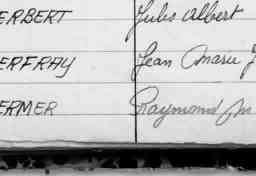 ERBERT Jules Albert
ERFRAY Jean Marie J
ERMER Raymond M